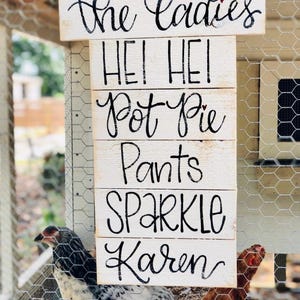 the Ladies
HEI HEI
Pot Pie
Pants
SPARKLE
Karen